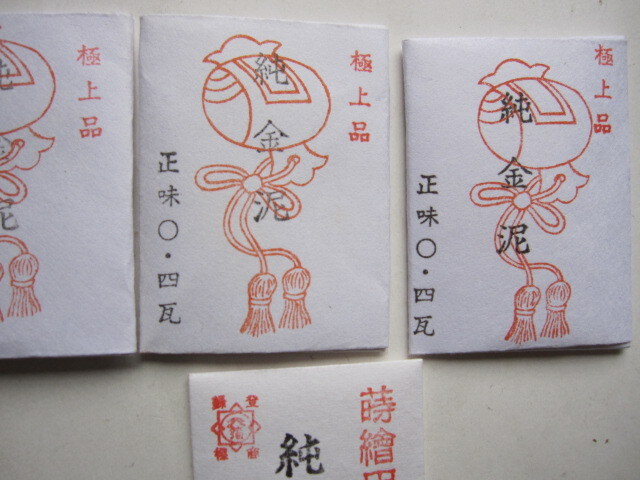 極上品
純金泥
極上品
純金泥
正味〇・四瓦
極上品
純金泥
正味〇・四瓦
蒔繪
純
登録